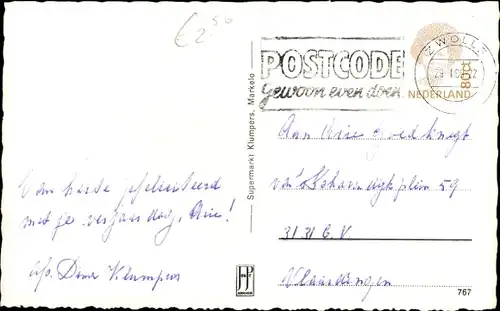 € 2,50
POSTCODE
gewoon even doen.
ZWOLLE
80ct
NEDERLAND
Supermarkt Klumpers, Markelo
Van harte gefeliciteerd
met je verjaardag, Arie!
Klumpers
Aan Arie Goedknegt
59
3131 C.V
Vlaardingen
JP
767